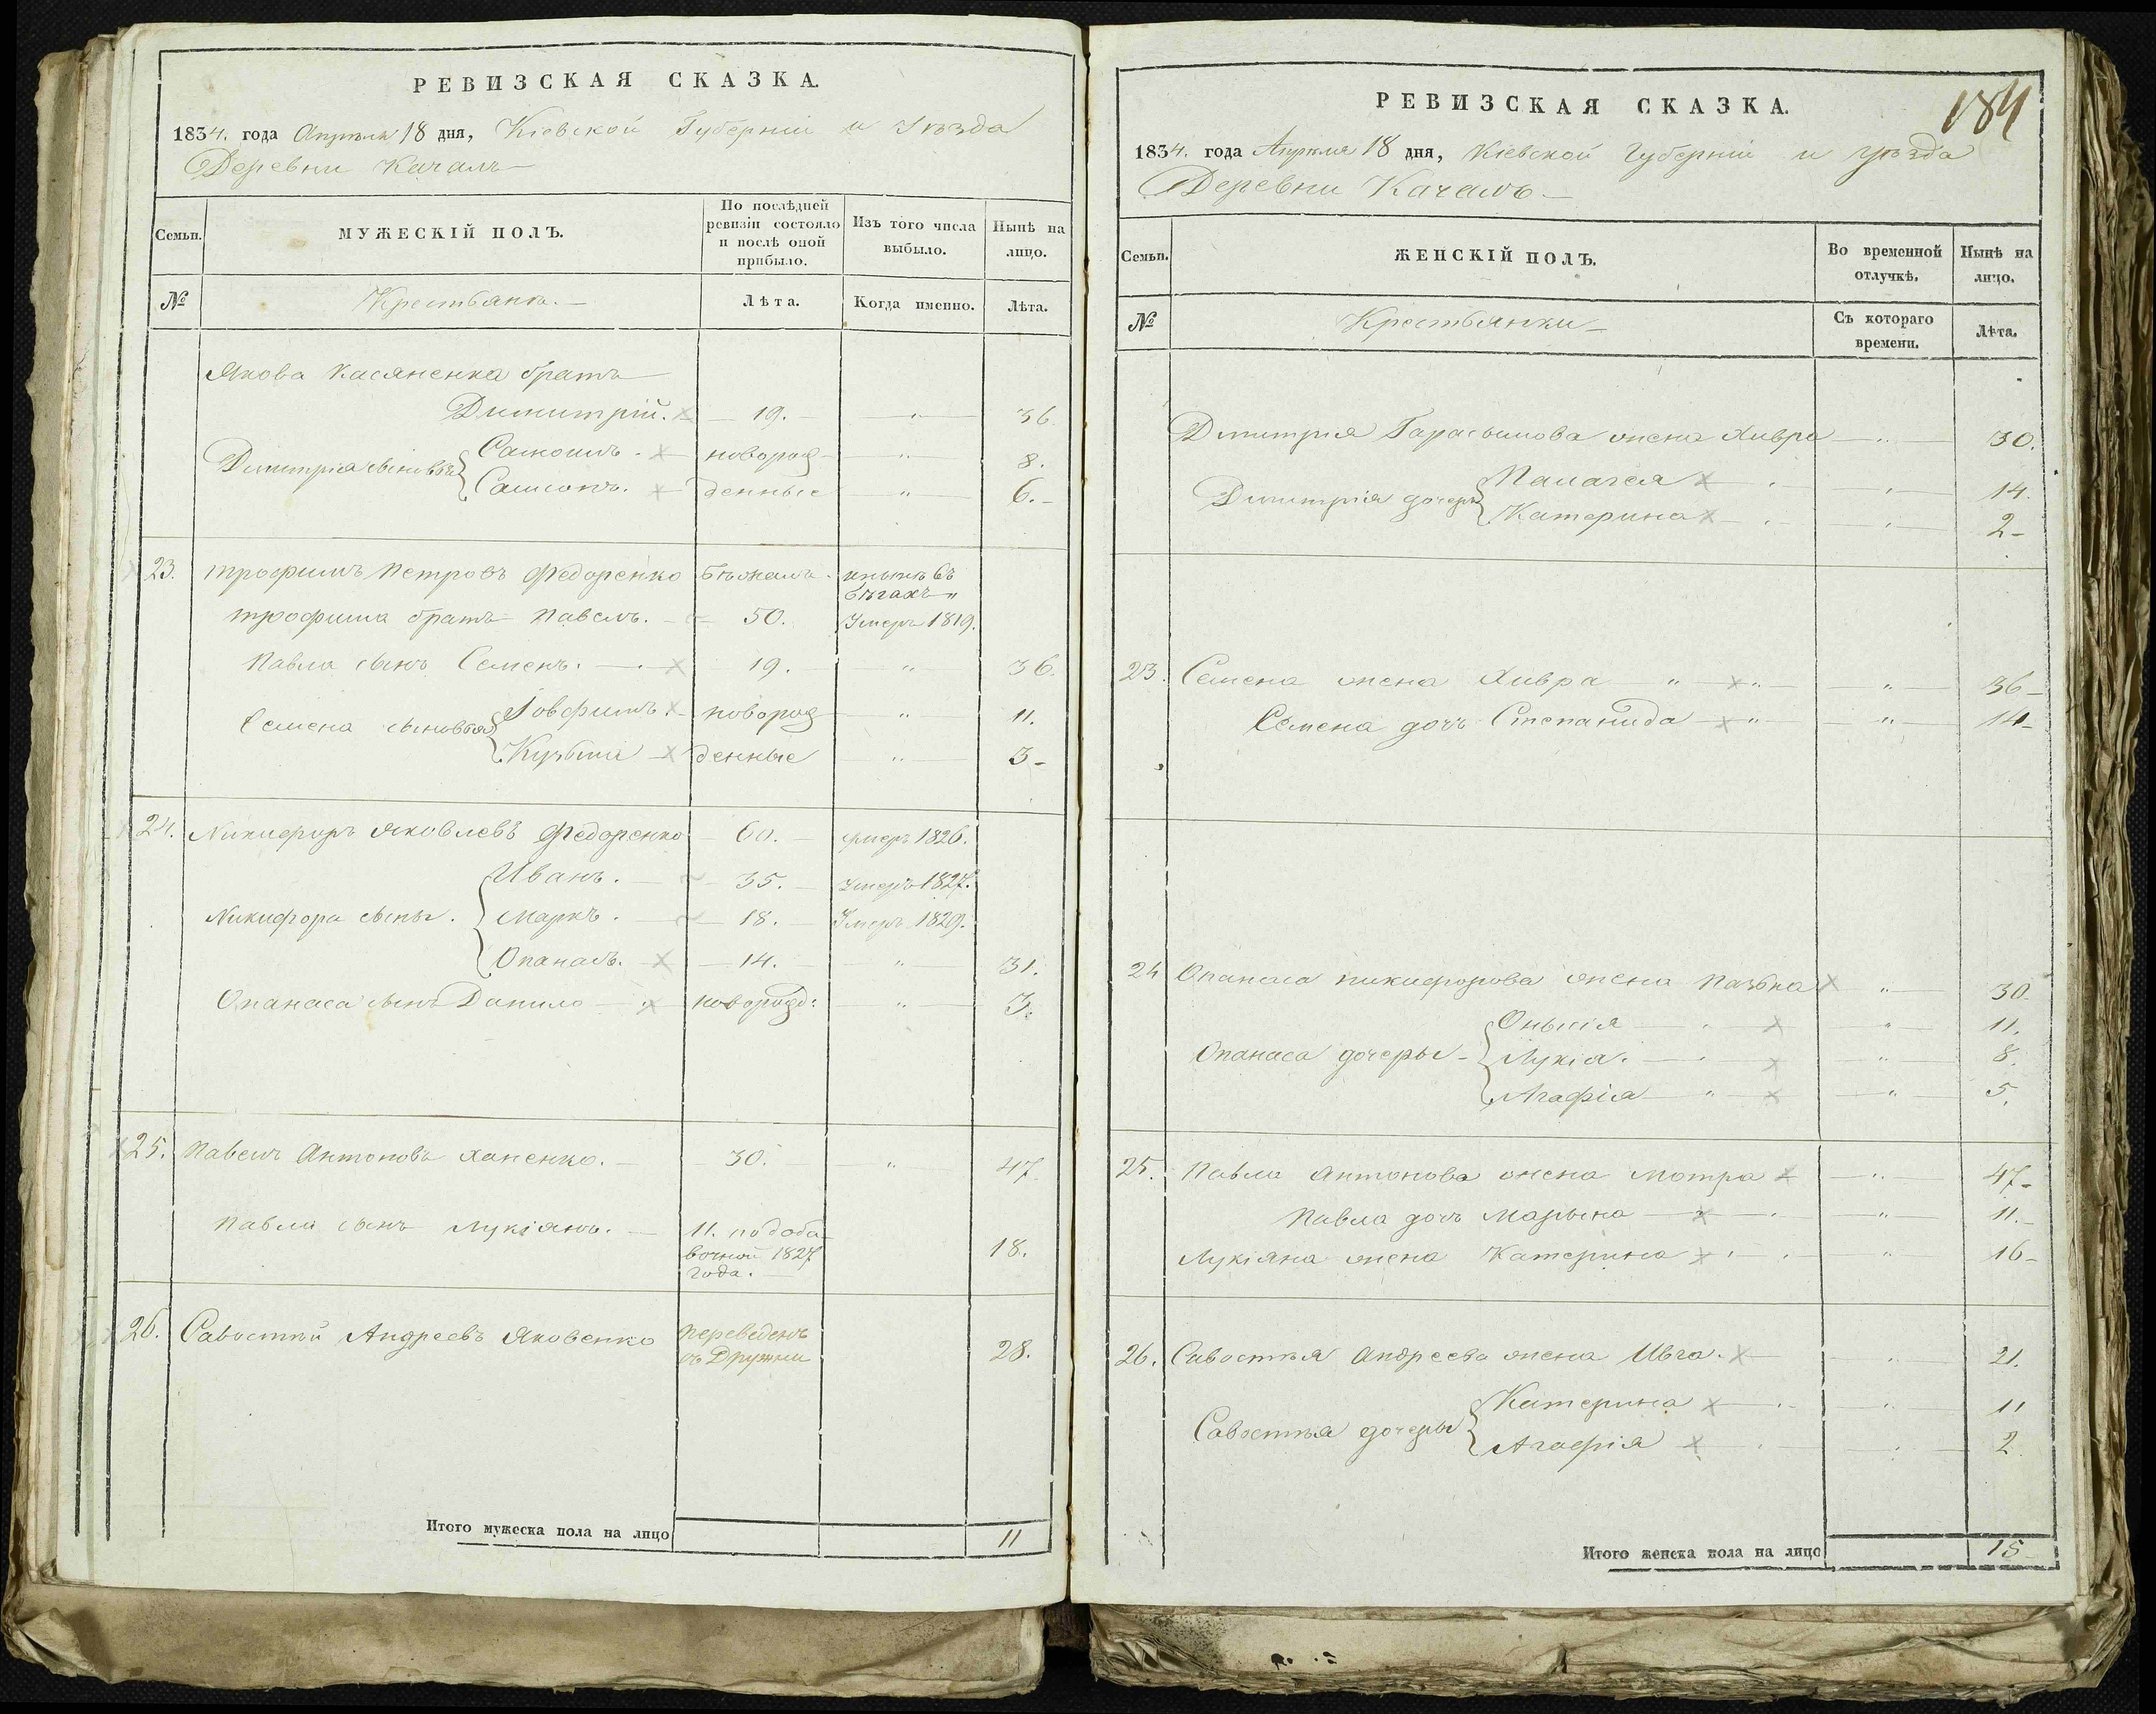 РЕВИЗСКАЯ СКАЗКА.
1834. года Апреля 18 дня, Кіевской Губерніи и Уѣзда
Деревни Качалъ
Семьи. МУЖЕСКІЙ ПОЛЪ. По послѣдней ревизіи состояло и послѣ оной прибыло. Изъ того числа выбыло. Нынѣ на лицо.
№ Крестьяне. Лѣта. Когда именно. Лѣта.
Якова Касяненка братъ
Димитрій. 19. " 36
Димитрія сыновья Самоилъ. новорож " 8.
Самсонъ. денные " 6.
23. Трофимъ Петровъ Федоренко Бѣжалъ. и нынѣ въ
бѣгахъ "
Трофима братъ Павелъ. 50. Умеръ 1819.
Павла сынъ Семенъ. 19. " 36.
Семена сыновья Іовфимъ. новорож " 11.
Кузьма денные " 3
24. Никифоръ Яковлевъ Федоренко 60. умеръ 1826.
Иванъ. 35. умеръ 1827.
Никифора сыны. Маркъ. 18. Умеръ 1829.
Опанасъ. 14. " 31.
Опанаса сынъ Данило новорожд: " 3.
25. Павелъ Антоновъ Ханенко. 30. " 47
Павла сынъ Лукіянъ. 11. по доба
вочной 1827 18.
года.
26. Савостѣй Андреевъ Яковенко переведенъ
съ Дружни 28.
Итого мужеска пола на лицо 11
184
РЕВИЗСКАЯ СКАЗКА.
1834. года Апреля 18 дня, Кіевской Губерніи и уѣзда
Деревни Качалъ
Семьи. ЖЕНСКІЙ ПОЛЪ. Во временной отлучкѣ. Нынѣ на лицо.
№ Крестьянки Съ котораго времени. Лѣта.
Димитрія Гарасымова жена Хивра " 30.
Димитрія дочеры Палагея " 14.
Катерина " 2
23. Семена жена Хивра " " 36
Семена дочь Степанида " " 14
24 Опанаса Никифорова жена Пазька " 30.
Онысія " 11.
Опанаса дочеры Лукія. " 8.
Агафія " " 5.
25. Павла Антонова жена Мотра " 47
Павла дочь Марына " " 11.
Лукіяна жена Катерина " 16
26. Савостѣя Андреева жена Ивга. " 21.
Катерина " 11
Савостѣя дочеры Агафія " 2.
Итого женска пола на лицо 15